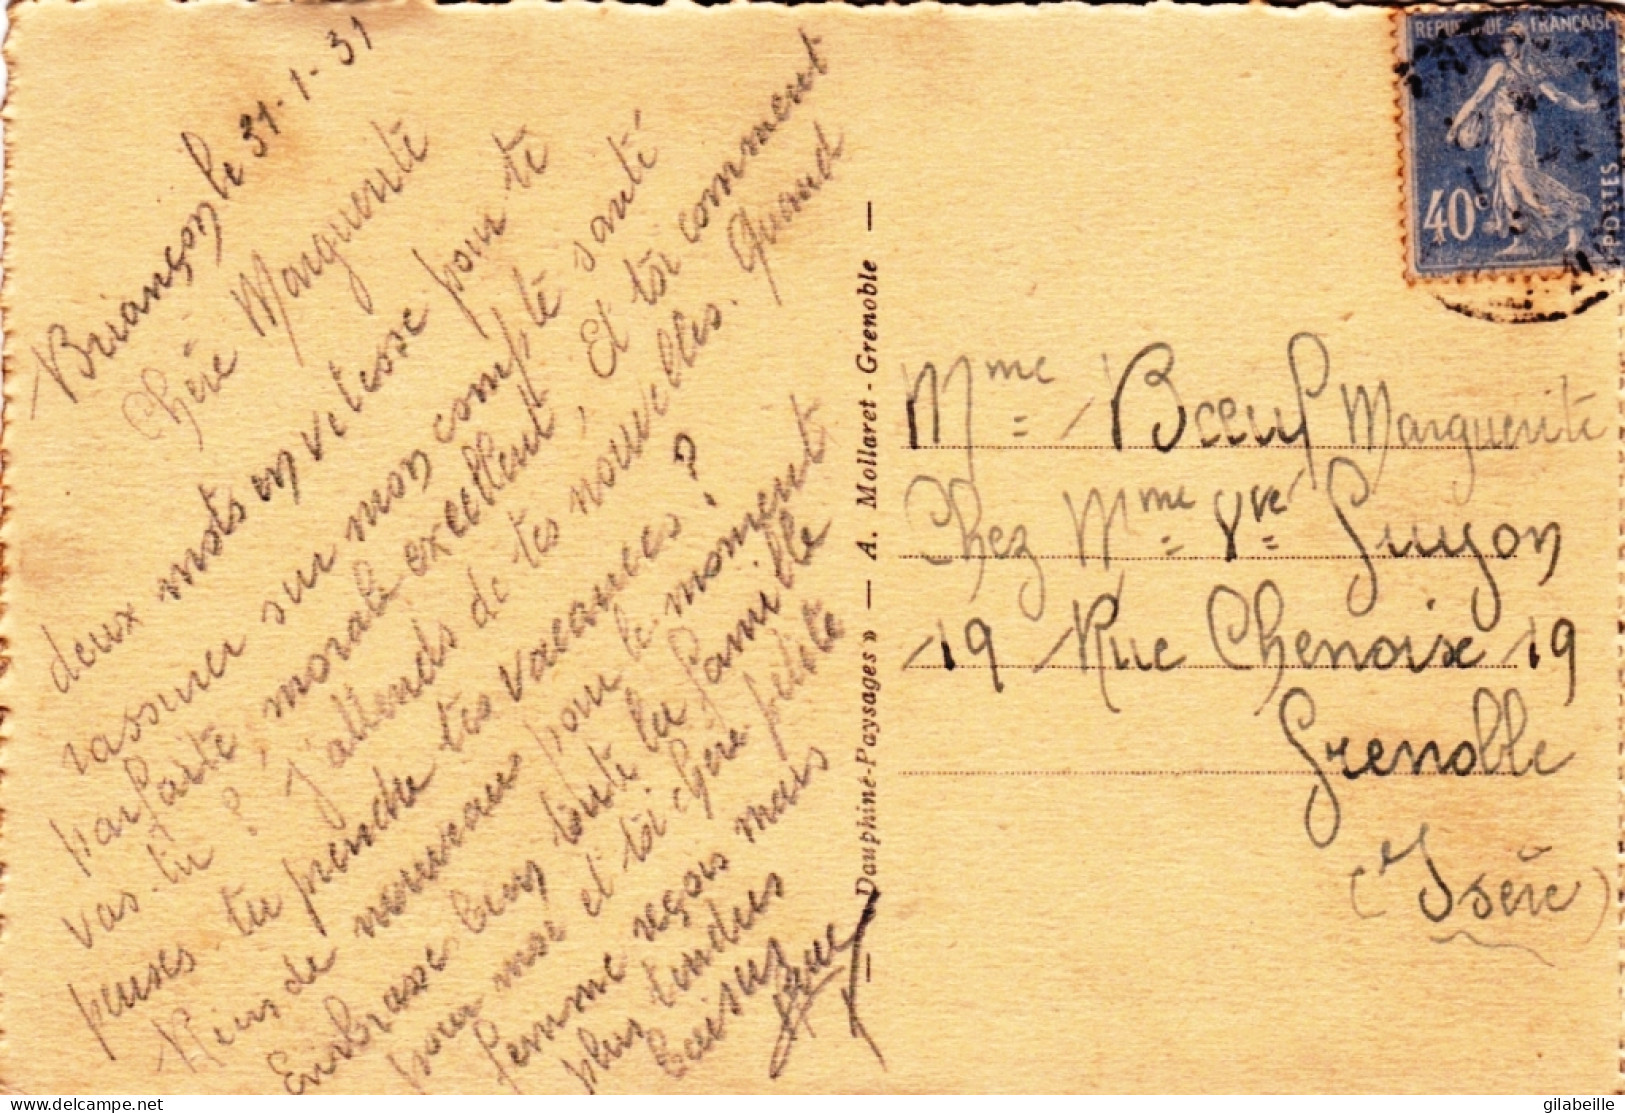 Briançon le 31-1-31
Chère Marguerite
deux mots en vitesse pour te
rassurer sur mon compte santé
parfaite, morale excellent, Et toi comment
vas-tu ? J'attends de tes nouvelles. Quand
penses-tu prendre tes vacances ?
Rien de nouveau pour le moment
Embrasse bien toute la famille
pour moi et toi chère petite
femme reçois mais
plus tendres
baisers
— Dauphiné-Paysages » — A. Mollaret - Grenoble —
REPUBLIQUE FRANÇAISE
40c
POSTES
Mme Bœuf Marguerite
Chez Mme Vve Guyon
19 Rue Chenoise 19
Grenoble
(Isère)
gilabeille